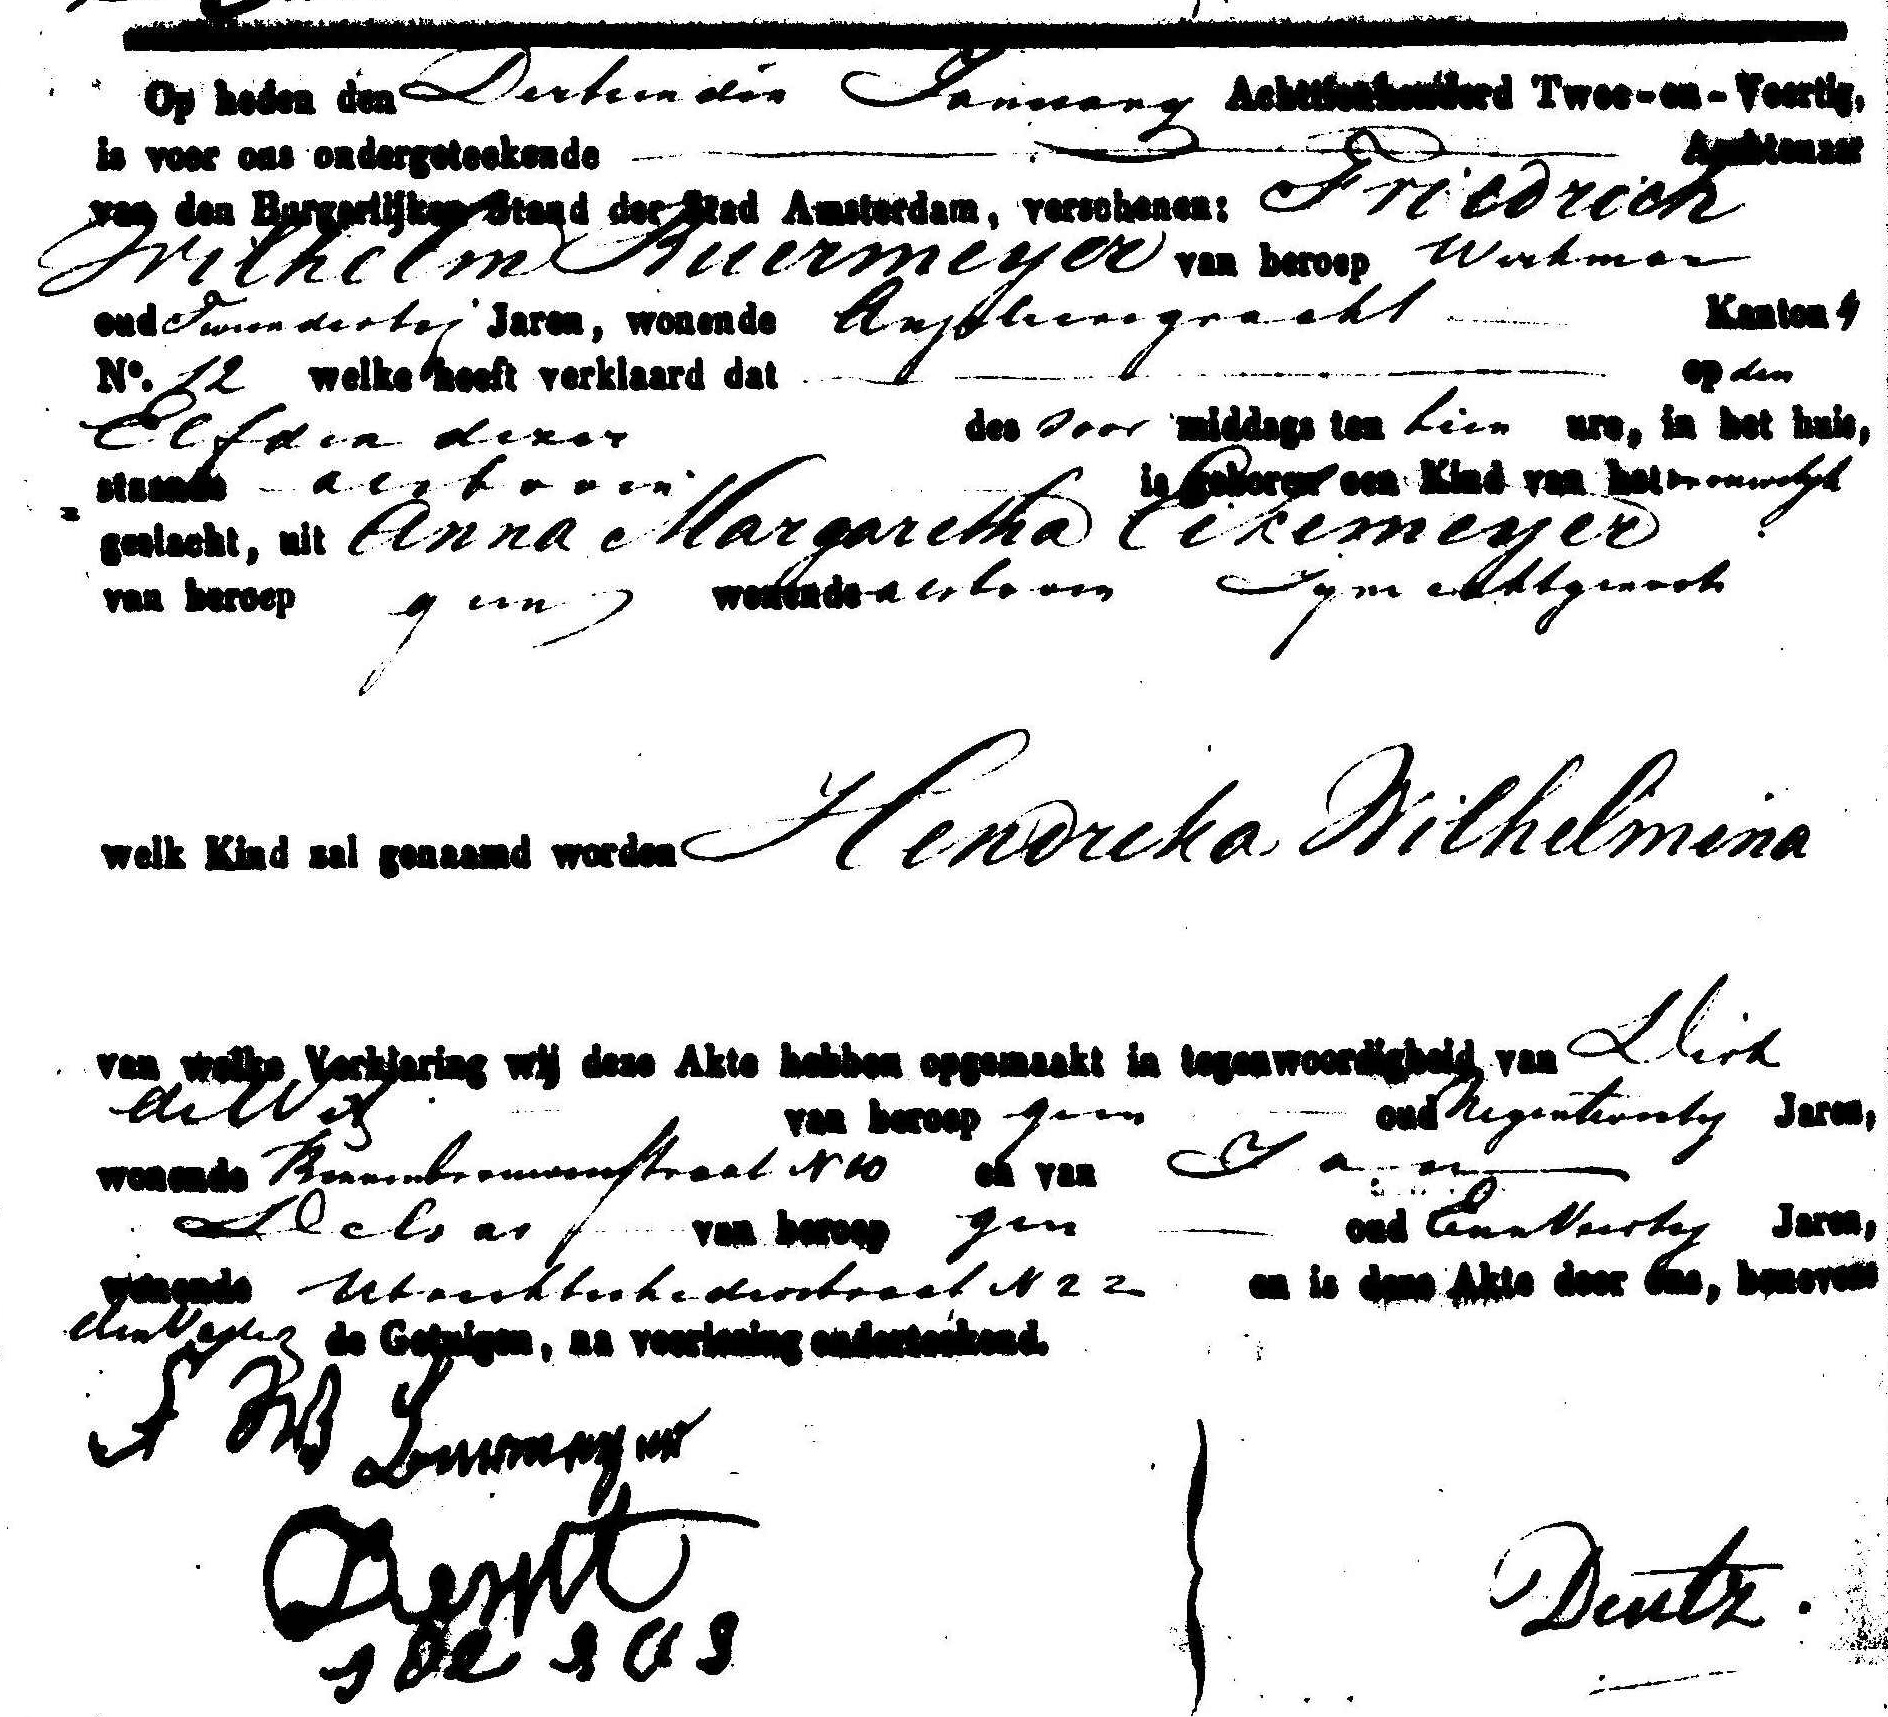 Op heden den Dertienden January Achttienhonderd Twee-en-Veertig,
is voor ons ondergeteekende Ambtenaar
van den Burgerlijken Stand der Stad Amsterdam, verschenen: Friedrich
Wilhelm Buermeyer van beroep Werkman
oud Jaren, wonende Anjeliersgracht Kanton 4
No. 12 welke heeft verklaard dat op den
Elfden dezer des voor middags ten tien ure, in het huis,
staande aldaar is geboren een Kind van het vrouwelijk
geslacht, uit Anna Margaretha Eikemeyer
van beroep geen wonende Zyne echtgenoote
welk Kind zal genaamd worden Hendreka Wilhelmina
van welke Verklaring wij deze Akte hebben opgemaakt in tegenwoordigheid van Dirk
de Wit van beroep geen oud Negentwintig Jaren,
wonende N 10 en van Jan
van beroep geen oud Een Veertig Jaren,
wonende Utrechtschedwarsstraat N 22 en is deze Akte door ons, benevens
den Vader de Getuigen, na voorlezing onderteekend.
F W Buermeyer
D de Wit
Deutz.